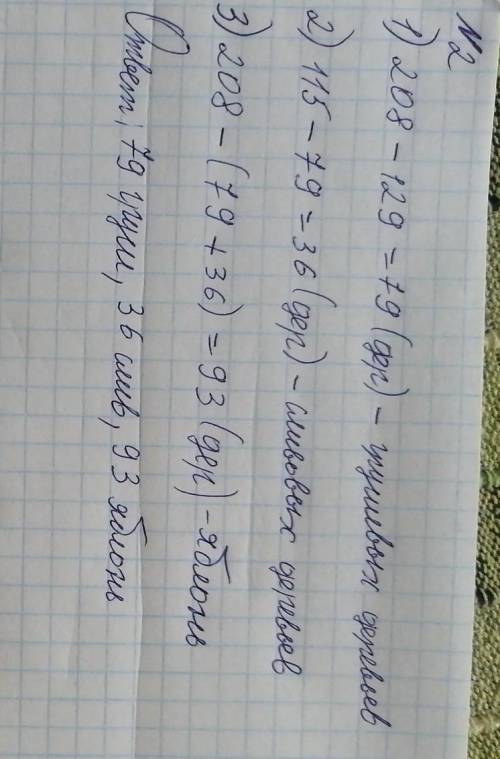 №2
1) 208 - 129 = 79 (дер) - грушевых деревьев
2) 115 - 79 = 36 (дер) - сливовых деревьев
3) 208 - (79 + 36) = 93 (дер) - яблонь
Ответ; 79 груш, 36 слив, 93 яблонь